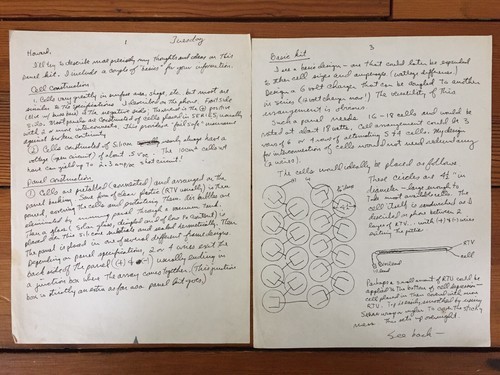 1 Tuesday
Howard,
I'll try to describe most precisely my thoughts and ideas on this
panel kit. I include a couple of "basics" for your information.
Cell Construction:
1. Cells vary greatly in surface area, shape, etc. but most are
similar to the specifications I described on the phone. Front side
(blue w/ bus bars) is the negative side, the underside is the (+) positive
side. Most panels are constructed of cells placed in SERIES, usually
with 2 or more interconnects. This provides a "fail safe" insurance
against broken continuity.
(2) Cells constructed of Silicon usually always have a
voltage (open circuit) of about .5 VDC. The 100mm cells we
have can yield up to 2.3 amps short circuit.
Panel Construction
(1) Cells are pretabbed (connected) and arranged on the
panel backing. Some form of clear plastic (RTV usually) is then
poured, covering the cells and protecting them. Air bubbles are
eliminated by running panel through a vacuum tank.
Then a glass (Solar glass, dimpled and of low Fe content) is
placed on this silicon substrate and sealed hermetically. Then
the panel is placed in one of several different frame designs.
Depending on panel specifications, 2 or 4 wires exit the
back side of the panel (+) & (-) usually ending in
a junction box where the array comes together. (This junction
box is strictly an extra as far as our panel kit goes)
3
Basic kit
I see a basic design - one that could later be expanded
to other cell sizes and amperages, (wattage difference)
Design a 6 volt charger that can be coupled to another
in series (12 volt charger now!) The versatility of this
arrangement is obvious.
Such a panel needs 16-18 cells and would be
rated at about 18 watts. Cell arrangement could be 3
rows of 6 or 4 rows of alternating 5 & 4 cells. My design
for interconnection of cells would not need rewiring any
(2 wires).
The cells would ideally be placed as follows
These circles are 4 1/2" in
diameter - large enough to
take most available cells. The
cell itself is sandwiched as I
described on phone between 2
layers of RTV... with (+) & (-) wires
exiting the pattern
RTV
cell
Perhaps a small amount of RTV could be
applied to the bottom of cell depression -
cell placed in then covered with more
RTV. Try
Saran wrap or
mess this sets up overnight.
See back -